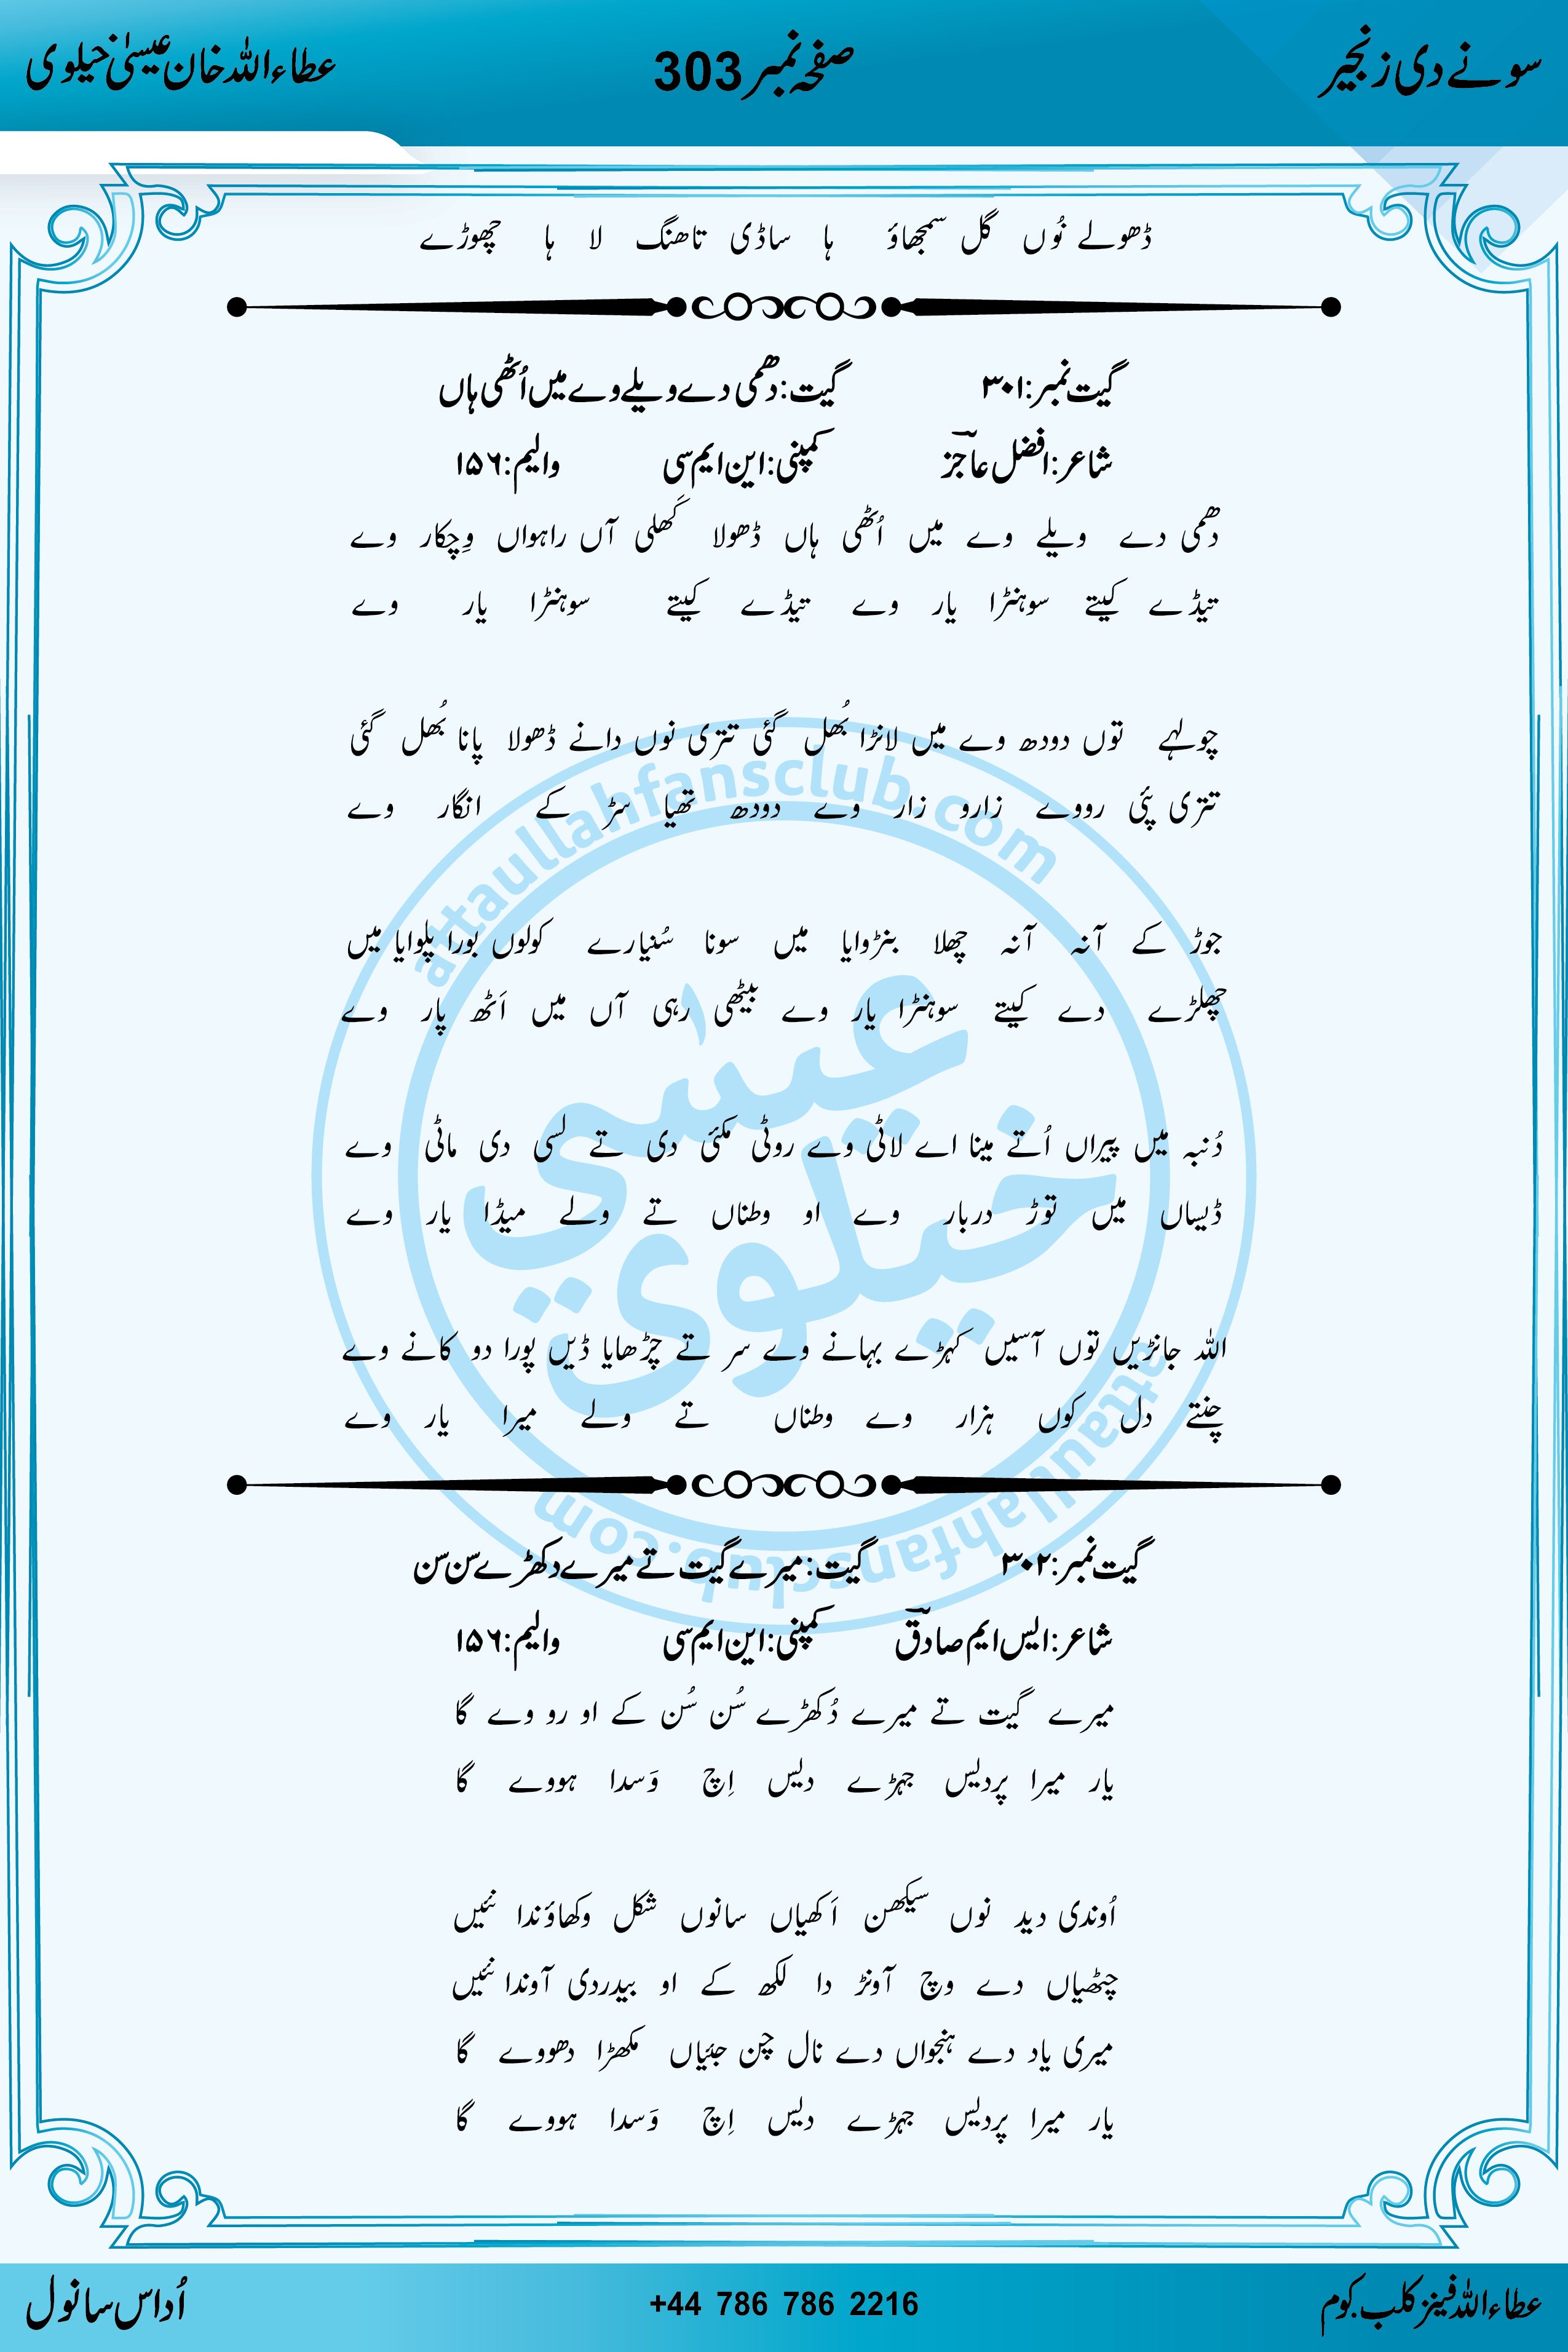 سونے دی زنجیر صفحہ نمبر 303 عطاءاللہ خان عیسیٰ خیلوی
ڈھولے نُوں گل سمجھاؤ ہا ساڈی تاھنگ لا ہا چھوڑے
گیت نمبر: ۳۰۱ گیت: دھمی دے ویلے وے میں اُٹھی ہاں
شاعر: افضل عاجزؔ کمپنی: این ایم سی والیم: ۱۵۶
دھمی دے ویلے وے میں اُٹھی ہاں ڈھولا کَھلی آں راہواں وِچکار وے
تیڈے کیتے سوہنڑا یار وے تیڈے کیتے سوہنڑا یار وے
چولہے توں دودھ وے میں لانڑا بُھل گئی تتری نوں دانے ڈھولا پانا بُھل گئی
تتری پئی رووے زارو زار وے دودھ تھیا سڑ کے انگار وے
جوڑ کے آنہ آنہ چھلا بنڑوایا میں سونا سُنیارے کولوں بورا پلوایا میں
چھلڑے دے کیتے سوہنڑا یار وے بیٹھی رہی آں میں اَٹھ پار وے
دُنبہ میں پیراں اُتے مینا اے لاٹی وے روٹی مکئی دی تے لسی دی ماٹی وے
ڈیساں میں توڑ دربار وے او وطناں تے ولے میڈا یار وے
اللہ جانڑیں توں آسیں کہڑے بہانے وے سر تے چڑھایا ڈیں پورا دو کانے وے
چِنتے دل کوں ہزار وے وطناں تے ولے میرا یار وے
گیت نمبر: ۳۰۲ گیت: میرے گیت تے میرے دکھڑے سن سن
شاعر: ایس ایم صادقؔ کمپنی: این ایم سی والیم: ۱۵۶
میرے گیت تے میرے دُکھڑے سُن سُن کے او رو وے گا
یار میرا پردیس جہڑے دیس اِچ وَسدا ہووے گا
اُوندی دید نوں سیکھن اَکھیاں سانوں شکل وکھاؤندا نئیں
چٹھیاں دے وچ آونڑ دا لکھ کے او بیدردی آوندا نئیں
میری یاد دے ہنجواں دے نال چن جئیاں مکھڑا دھووے گا
یار میرا پردیس جہڑے دیس اِچ وَسدا ہووے گا
عطاءاللہ فینز کلب۔کوم +44 786 786 2216 اُداس سانول
attaullahfansclub.com
عیسٰی
خیلوی
attaullahfansclub.com